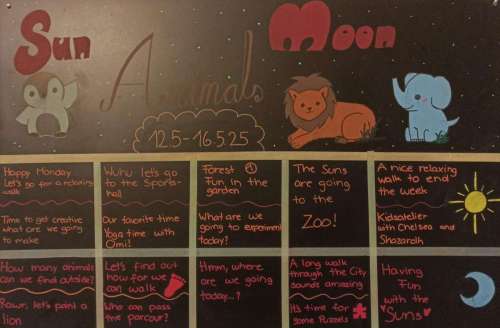 Sun
Moon
Animals
12.5-16.5.25
Happy Monday
Let's go for a relaxing
walk
Time to get creative
what are we going
to make
Wuhu let's go
to the Sports-
hall
Our favorite time
Yoga time with
Omi!
Forest
Fun in the
garden
What are we
going to experiment
today?
The Suns
are going
to the
Zoo!
A nice relaxing
walk to end
the week
Kidsatelier
with Chelsea and
Shazarah
How many animals
can we find outside?
Rawr, let's paint a
lion
Let's find out
how far we
can walk
Who can pass
the parcour?
Hmm, where
are we going
today...?
A long walk
through the City
sounds amazing
It's time for
some Puzzels
Having
Fun
with the
"Suns"